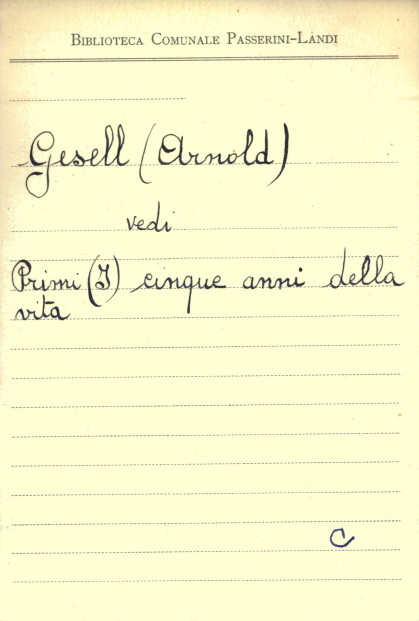 BIBLIOTECA COMUNALE PASSERINI-LANDI
Gesell (Arnold)
vedi
Primi (I) cinque anni della
vita
C